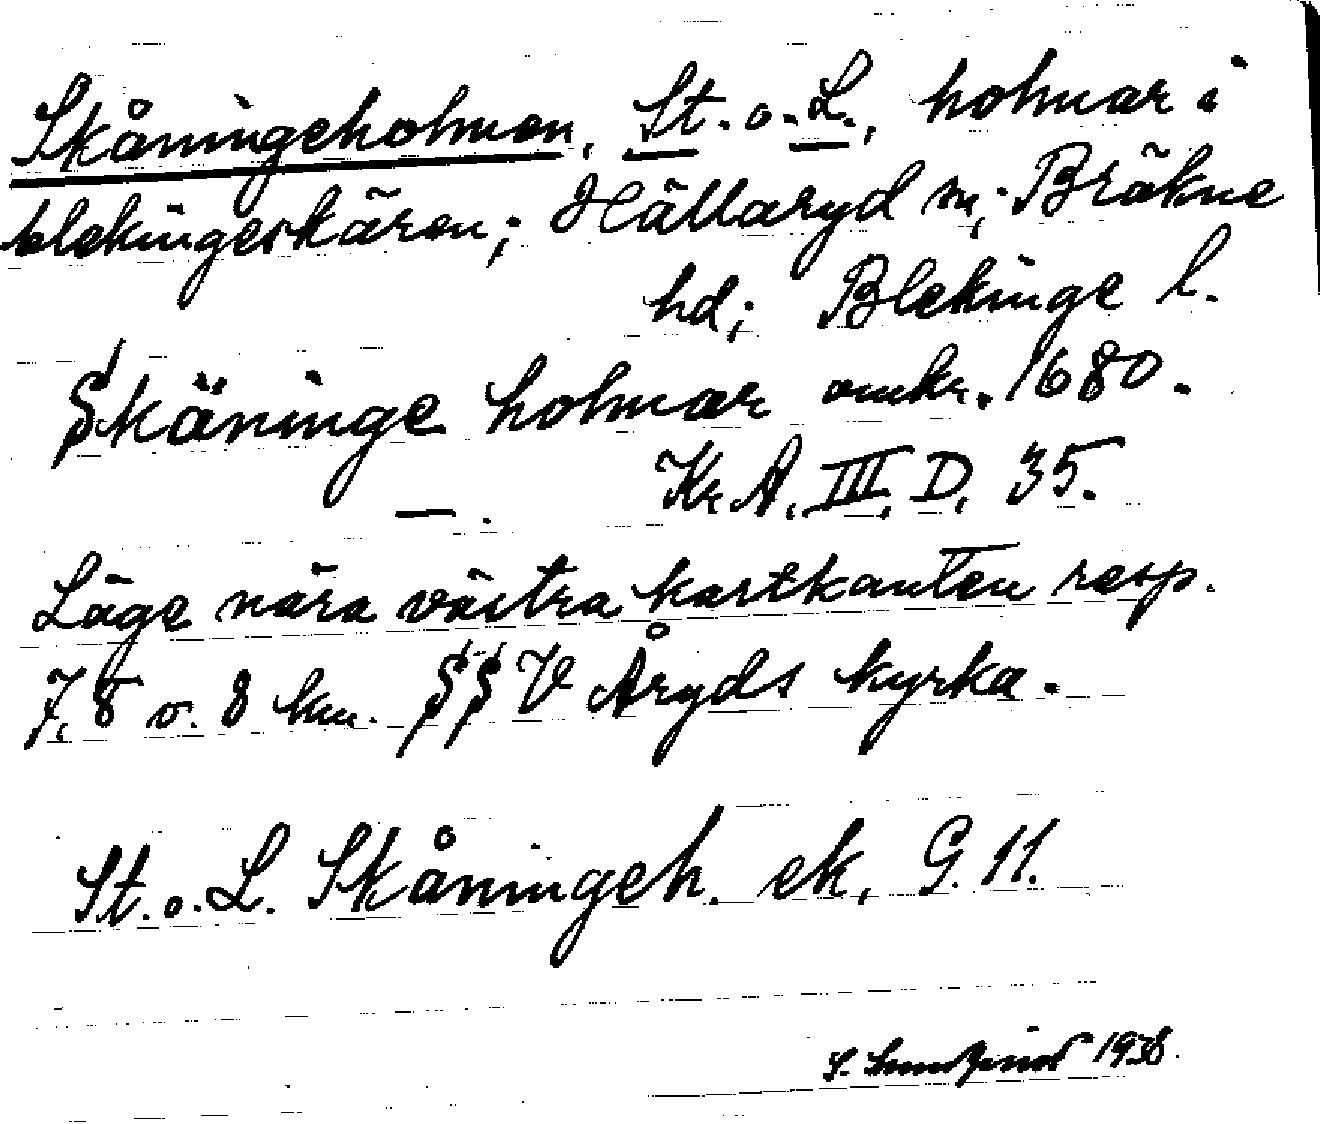 Skåningeholmen, St. o. L., holmar i
blekingeskären; Hällaryd sn; Bräkne
hd; Blekinge l.
Skäninge holmar omkr. 1680.
Kr. A. III. D. 35.
Läge nära västra kartkanten resp.
7,8 o. 8 km. SSV Åryds kyrka.
St. o. L. Skåningeh. ek. G. 11.
1938.